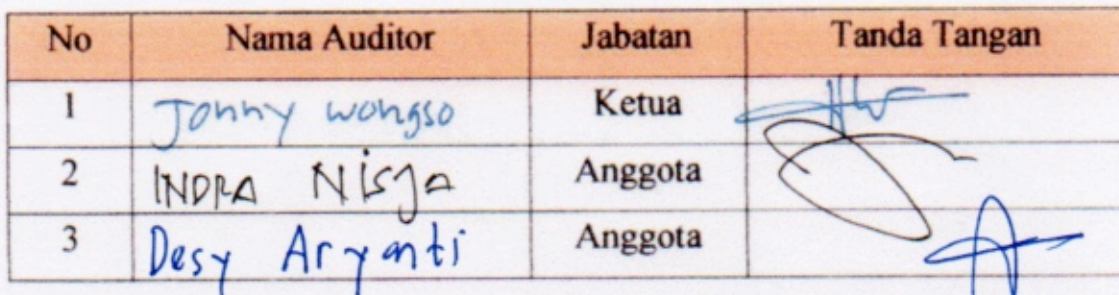 No Nama Auditor Jabatan Tanda Tangan
1 Jonny Wongso Ketua
2 INDRA Nisja Anggota
3 Desy Aryanti Anggota